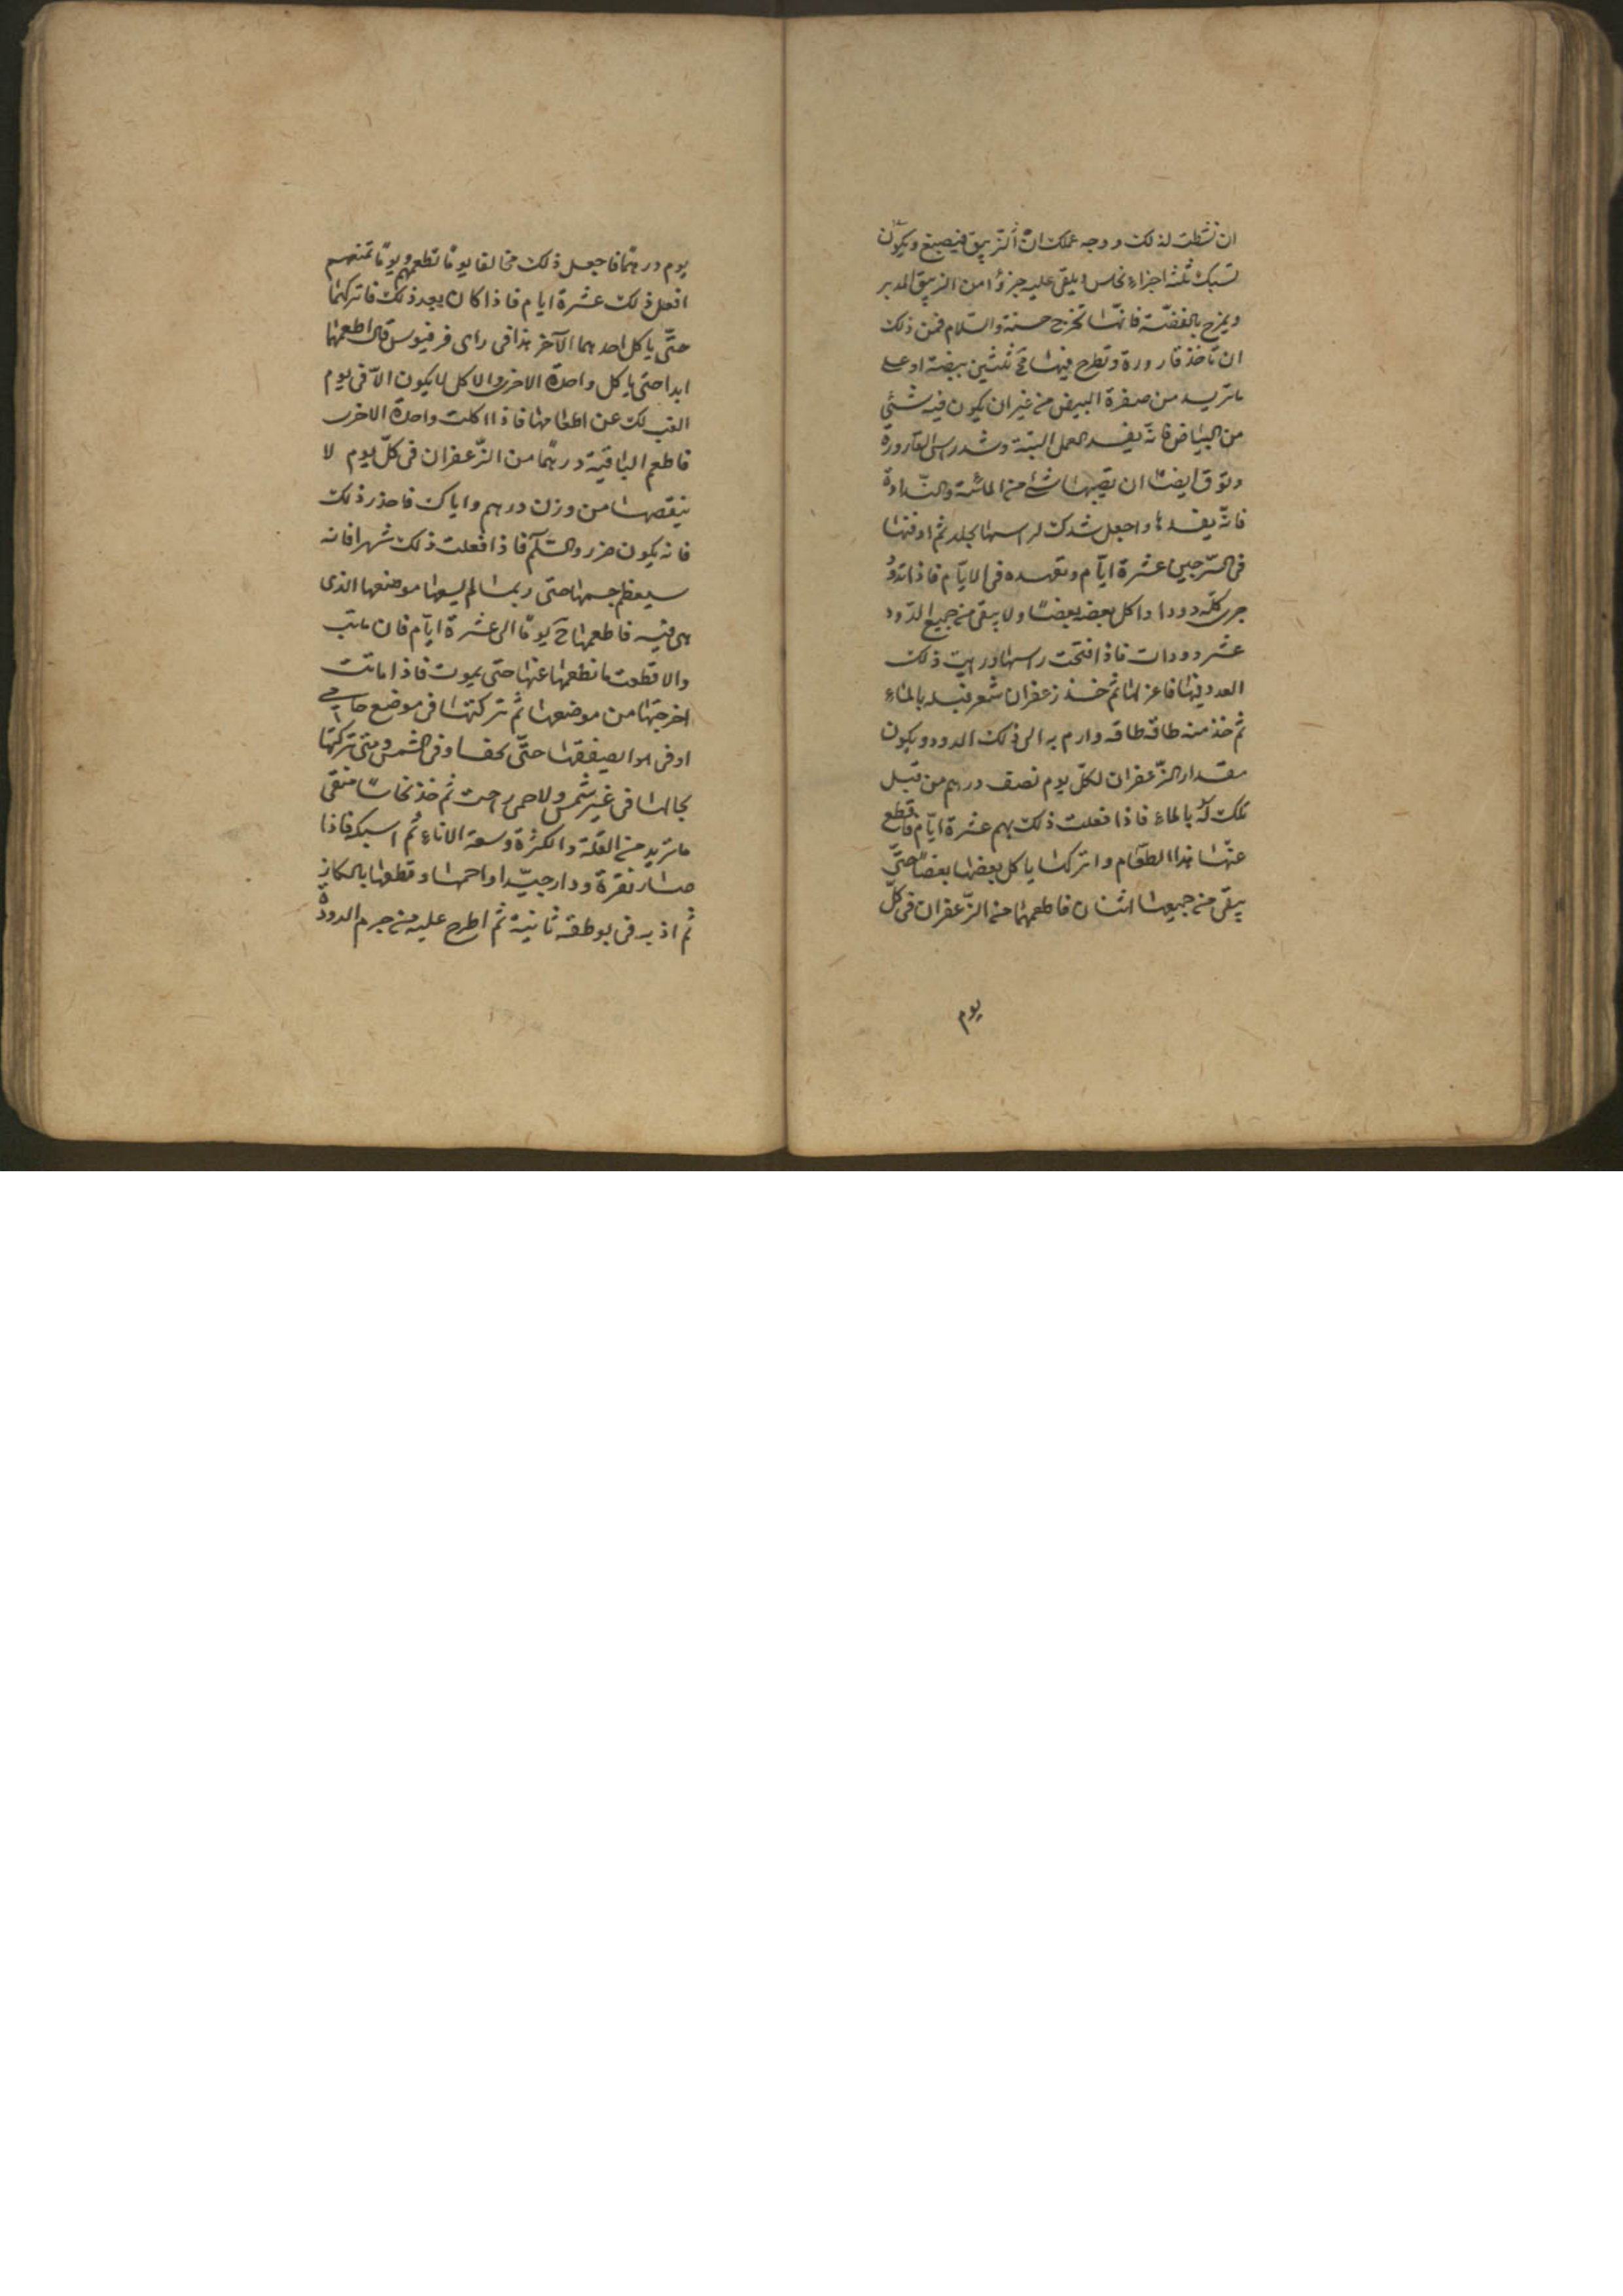 ان نشطت لذلك ووجه عملك ان الزيبق فيصبغ ويكون
تسبك ثلثة اجزاء نحاس ويلقى عليه جزؤا من الزيبق المدبر
ويمزج بالفضّة فانّها تخرج حسنة والسّلام فمن ذلك
ان تأخذ قارورة وتطرح فيها مح ثلثين بيضة او على
ما تريد من صفرة البيض من غير ان يكون فيه شئ
من البياض فانّه يفسد العمل البتّة وشد راس القارورة
وتوق ايضًا ان يصيبها شئ من المائية والنّداوة
فانّه يفسدها واجعل شدك لراسها بجلد ثم ادفنها
فى السّرجين عشرة ايّام وتعهده فى الايّام فاذا تدوّد
جرى كلّه دودا واكل بعضه بعضًا ولا يبقى من جميع الدّود
عشر دودات فاذا فتحت راسها ورايت ذلك
العدد فيها فاعزلها ثم خذ زعفران شعر فبله بالماء
ثم خذ منه طاقه طاقه وارم به الى ذلك الدود ويكون
مقدار الزّعفران لكلّ يوم نصف درهم من قبل
بلك له بالماء فاذا فعلت ذلك بهم عشرة ايّام فاقطع
عنها هذا الطّعام واتركها ياكل بعضها بعضًا حتّى
يبقى من جميعها اثنان فاطعمهما من الزّعفران فى كلّ
يوم
يوم درهمًا فاجعل ذلك مخالفا يومًا تطعمهم ويومًا تمنعهم
افعل ذلك عشرة ايام فاذا كان بعد ذلك فاتركهما
حتّى ياكل احدهما الآخر هذا فى راى فرفيوس قال اطعمهما
ابدا حتى ياكل واحدة الاخرى والاكل لا يكون الاّ فى يوم
الغب لك عن اطعامها فاذا اكلت واحدة الاخرى
فاطعم الباقية درهمًا من الزّعفران فى كلّ يوم لا
ينقصها من وزن درهم واياك فاحذر ذلك
فانه يكون ضرر والسّلم فاذا فعلت ذلك شهرا فانه
سيعظم جسمها حتى ربما لم يسعها موضعها الذى
هى فيه فاطعمها يومًا الى عشرة ايّام فان ماتت
والا قطعت ما تطعمها عنها حتى يموت فاذا ماتت
اخرجتها من موضعها ثم تركتها فى موضع حامى
او فى هوا يصفقها حتّى تجف او فى الشمس ومتى تركتها
بحالها فى غير شمس ولا حمى راحت ثم خذ نحاسًا منقى
ما تريد من القلة والكثرة وسعة الاناء ثم اسبكه فاذا
صار نقرة ودار جيّدا واحمها وقطعها بالكاز
ثم اذبه فى بوطقه ثانية ثم اطرح عليه من جرم الدودة